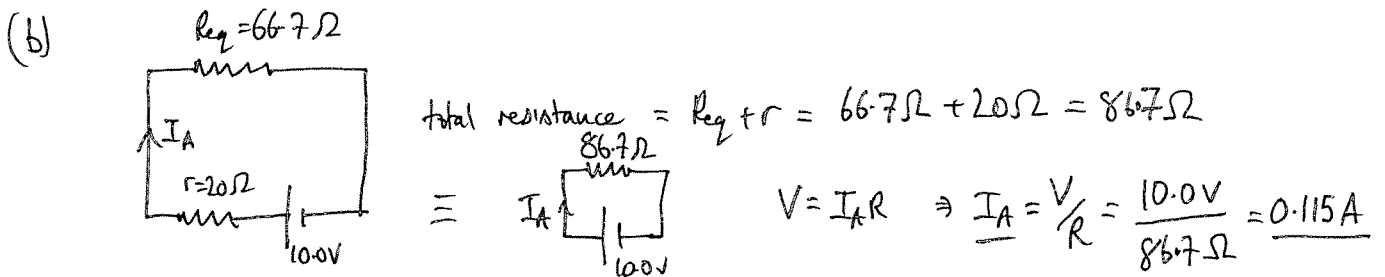 (b)
Req = 66.7Ω
IA
r=20Ω
10.0V
total resistance = Req + r = 66.7Ω + 20Ω = 86.7Ω
≡
86.7Ω
IA
10.0V
V = IAR ⇒ IA = V/R = 10.0V/86.7Ω = 0.115A